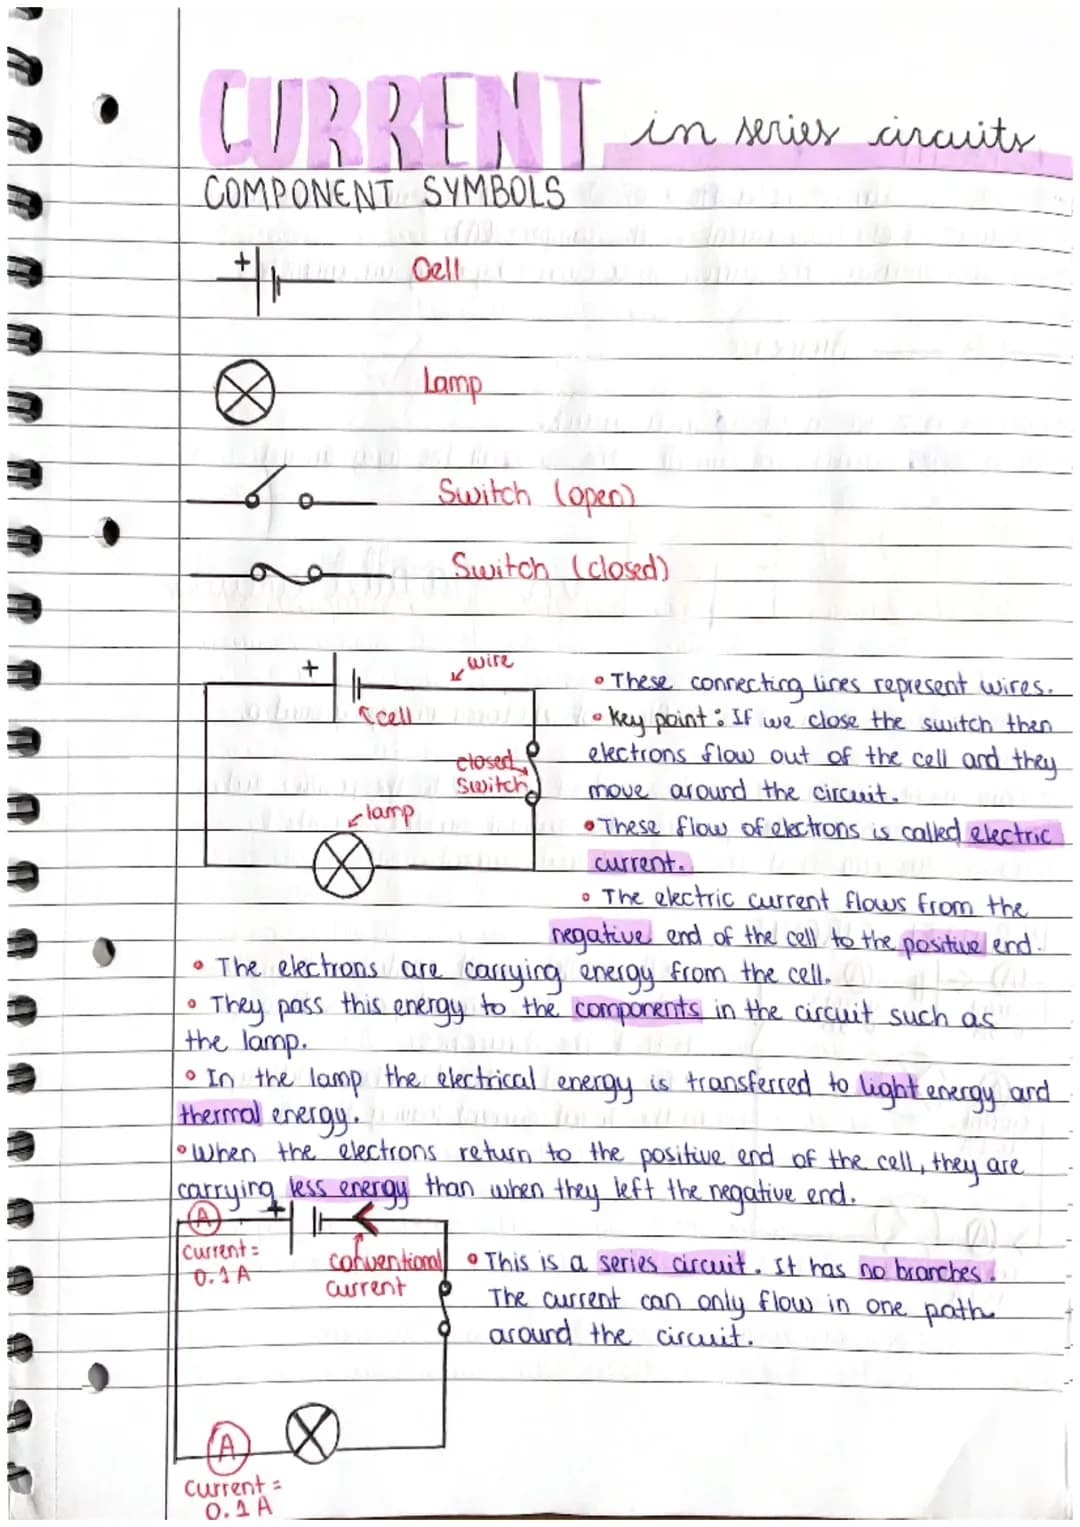 CURRENT in series circuits
COMPONENT SYMBOLS
+ Cell
Lamp
Switch (open)
Switch (closed)
+
wire
cell
closed
Switch
lamp
• These connecting lines represent wires.
• Key point: If we close the switch then
electrons flow out of the cell and they
move around the circuit.
• These flow of electrons is called electric
current.
• The electric current flows from the
negative end of the cell to the positive end.
• The electrons are carrying energy from the cell.
• They pass this energy to the components in the circuit such as
the lamp.
• In the lamp the electrical energy is transferred to light energy and
thermal energy.
• When the electrons return to the positive end of the cell, they are
carrying less energy than when they left the negative end.
A
+
Current =
0.1 A
conventional
current
• This is a series circuit. It has no branches.
The current can only flow in one path
around the circuit.
A
Current =
0.1 A